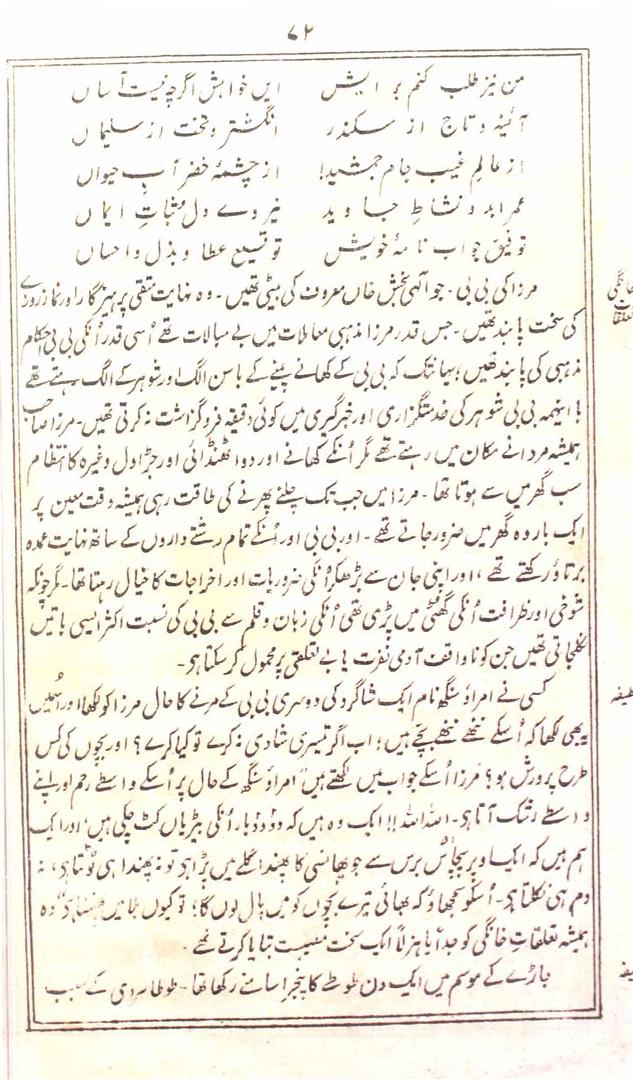 ۷۲
من نیز طلب کنم برایش ایں خواہش اگرچہ نیست آساں
آئینہ و تاج از سکندر انگشتر و تخت از سلیماں
از عالمِ غیب جامِ جمشید از چشمۂ خضر آبِ حیواں
عمرِ ابد و نشاطِ جاوید نیروے دل و ثباتِ ایماں
توفیقِ جوابِ نامۂ خویش توقیعِ عطا و بذل و احساں
خانگی تعلقات
مرزا کی بی بی - جو الٰہی بخش خاں معروف کی بیٹی تھیں - وہ نہایت متقی پرہیزگار اور نماز روزے
کی سخت پابند تھیں - جس قدر مرزا مذہبی معاملات میں بے مبالات تھے اُسی قدر اُنکی بی بی احکام
مذہبی کی پابند تھیں؛ یہانتک کہ بی بی کے کھانے پینے کے باسن الگ اور شوہر کے الگ رہتے تھے
با اینہمہ بی بی شوہر کی خدمتگزاری اور خبرگیری میں کوئی دقیقہ فروگزاشت نہ کرتی تھیں - مرزا صاحب
ہمیشہ مردانے مکان میں رہتے تھے مگر اُنکے کھانے اور دوا ٹھنڈائی اور جڑاول وغیرہ کا انتظام
سب گھر میں سے ہوتا تھا - مرزا میں جب تک چلنے پھرنے کی طاقت رہی ہمیشہ وقت معین پر
ایک بار وہ گھر میں ضرور جاتے تھے - اور بی بی اور اُنکے تمام رشتے داروں کے ساتھ نہایت عمدہ
برتاؤ رکھتے تھے، اور اپنی جان سے بڑھکر اُنکی ضروریات اور اخراجات کا خیال رہتا تھا - مگر چونکہ
شوخی اور ظرافت اُنکی گھٹی میں پڑی تھی اُنکی زبان و قلم سے بی بی کی نسبت اکثر ایسی باتیں
نکلجاتی تھیں جن کو ناواقف آدمی نفرت یا بے تعلقی پر محمول کر سکتا ہے -
لطیفہ
کسی نے امراؤ سنگھ نام ایک شاگرد کی دوسری بی بی کے مرنے کا حال مرزا کو لکھا اور اُسمیں
یہ بھی لکھا کہ اُسکے ننھے ننھے بچے ہیں؛ اب اگر تیسری شادی نہ کرے تو کیا کرے؟ اور بچوں کی کس
طرح پرورش ہو؟ مرزا اُسکے جواب میں لکھتے ہیں "امراؤ سنگھ کے حال پر اُسکے واسطے رحم اور اپنے
واسطے رشک آتا ہے - اللہ اللہ!! ایک وہ ہیں کہ دو دو بار اُنکی بیڑیاں کٹ چکی ہیں؛ اور ایک
ہم ہیں کہ ایک اوپر پچاس برس سے جو پھانسی کا پھندا گلے میں پڑا ہے تو نہ پھندا ہی ٹوٹتا ہے، نہ
دم ہی نکلتا ہے - اُسکو سمجھاؤ کہ بھائی تیرے بچوں کو میں پال لوں گا؛ تو کیوں بلا میں پھنستا ہے" وہ
ہمیشہ تعلقاتِ خانگی کو جداً یا ہزلاً ایک سخت مصیبت بتایا کرتے تھے -
جاڑے کے موسم میں ایک دن طوطے کا پنجرا سامنے رکھا تھا - طوطا سردی کے سبب